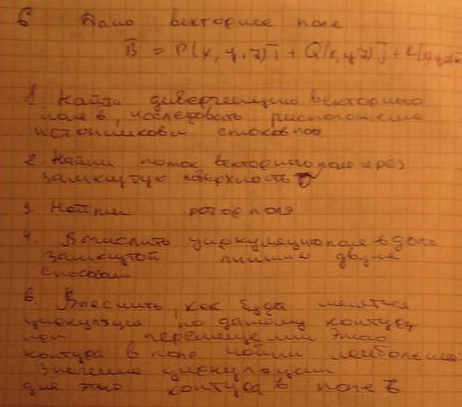 6 Дано векторное поле
B̄ = P(x, y, z)ī + Q(x, y z)j̄ +
1. Найти дивергенцию векторного
поле в, исследовать расположение
источников и стоков поля
2. Найти поток векторного поля через
замкнутую поверхность σ
3. Найти ротор поля
4. Вычислить циркуляцию поле вдоль
замкнутой линии двумя
способами
6 Выяснить, как будет меняться
циркуляция по данному контуру
при перемещении этого
контура в поле найти наибольшее
значение циркуляции
для этого контура в поле в